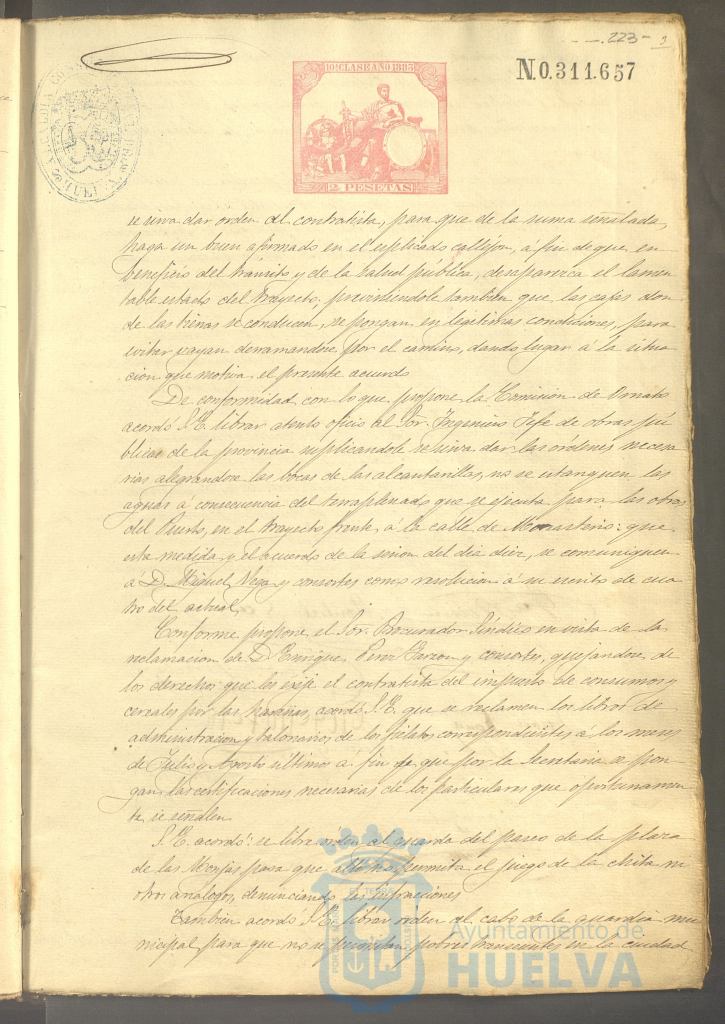 223
N.0.311.657
10ª CLASE AÑO 1883
2 PESETAS
HUELVA
se sirva dar órden al contratista, para que de la suma senalada,
haga un buen afirmado en el esplicado callejon, á fin de que, en
beneficio del tránsito, y de la salud pública, desaparezca el lamen
table estado del trayecto, previniendole tambien que, las cajas don
de las tierras se conducen, se pongan en legítimas condiciones, para
evitar vayan derramandose por el camino, dando lugar á la situa
cion que motiva el presente acuerdo
De conformidad con lo que propone la Comision de Ornato
acordó S.E. librar atento oficio al Sor. Ingeniero Jefe de obras pú
blicas de la provincia suplicandole se sirva dar las ordenes necesa
rias alegrandose las bocas de las alcantarillas, no se estanquen las
aguas á consecuencia del terraplenado que se ejecuta para las obras
del Puerto, en el trayecto frente á la calle de Monasterio: que
esta medida y el acuerdo de la sesion del dia diez, se comuniquen
á D. Miguel Vega y consortes como resolucion á su escrito de cua
tro del actual
Conforme propone el Sor. Procurador Síndico en vista de la
reclamacion de D. Enrique Perez y consortes, quejandose de
los derechos que les exije el contratista del impuesto de consumos y
cereales por las harinas, acordó S.E. que se reclamen los libros de
administracion y talonarios de los fielatos correspondientes á los meses
de Julio y Agosto últimos á fin de que por la Secretaria se pon
gan las certificaciones necesarias de los particulares que oportunamen
te se señalen
S.E. acordó: se libre orden al guarda del paseo de la plaza
de las Monjas para que allí no permita el juego de la chita ni
otros análogos, denunciando las infracciones
Tambien acordó S.E. librar orden al cabo de la guardia mu
nicipal para que no se permitan pobres transeuntes en la ciudad
Ayuntamiento de
HUELVA